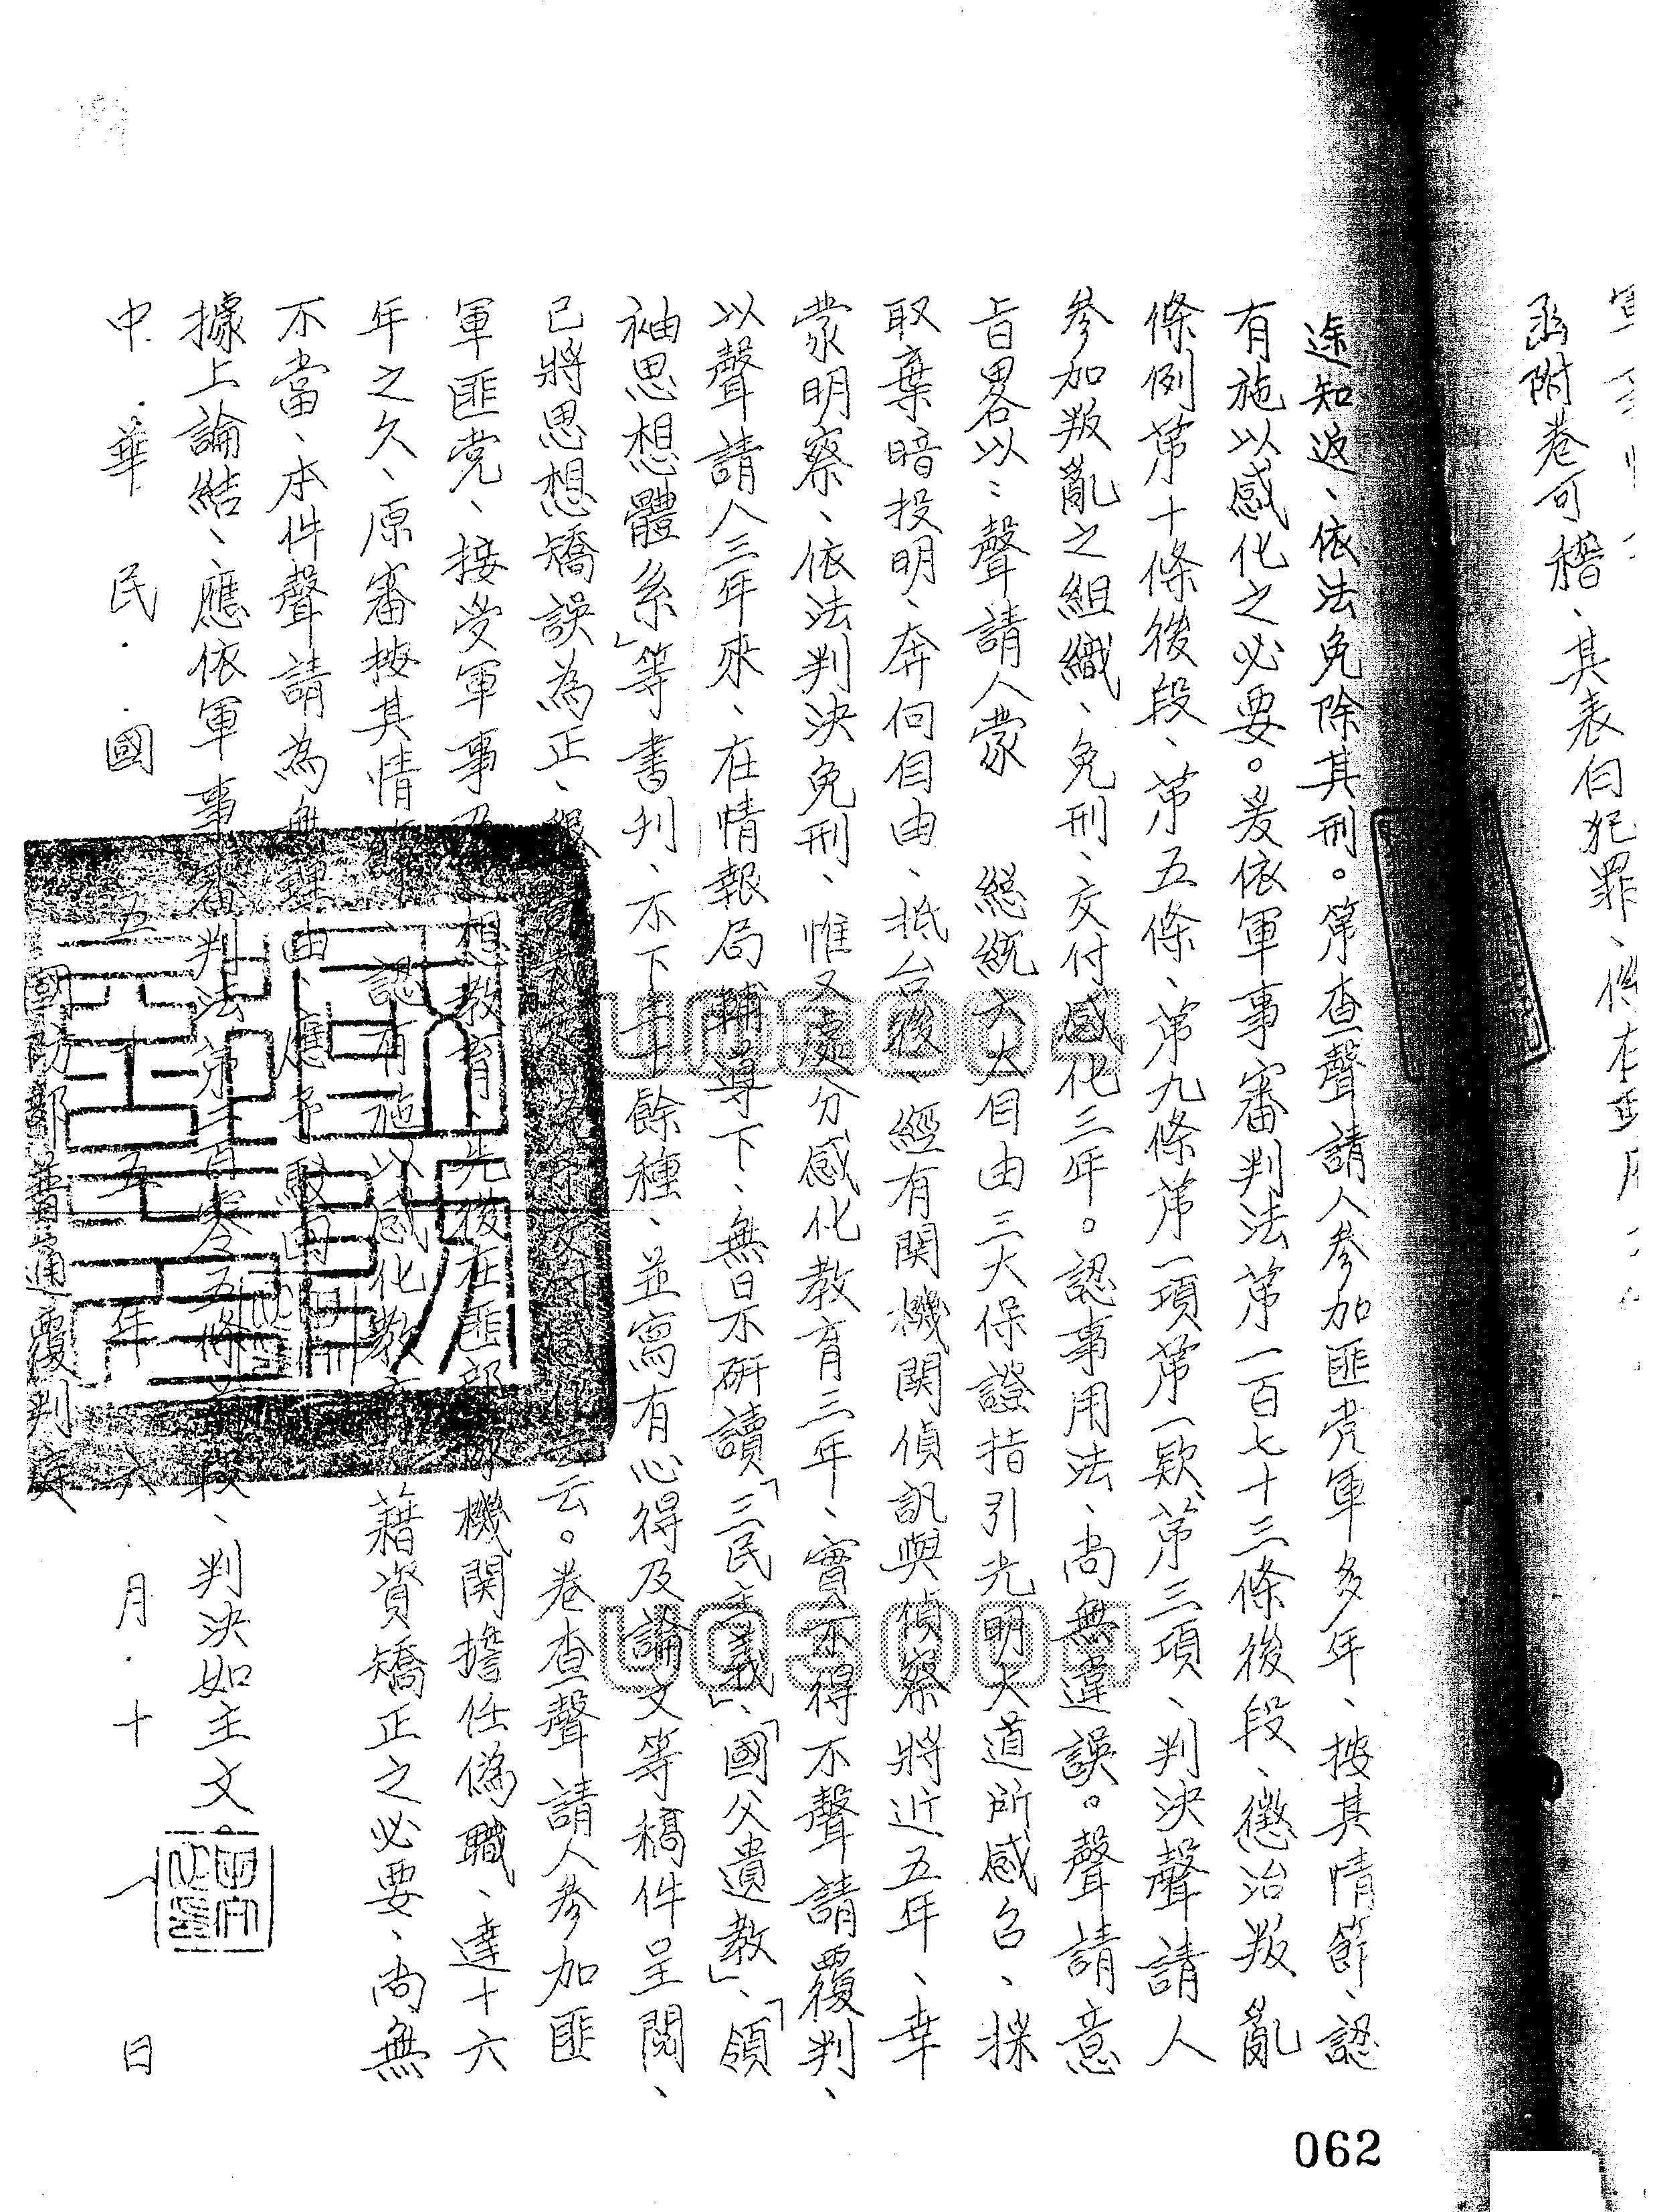 函附卷可稽、其表白犯罪、係在
途知返、依法免除其刑。第查聲請人參加匪党軍多年、按其情節、認
有施以感化之必要。爰依軍事審判法第一百七十三條後段、懲治叛亂
條例第十條後段、第五條、第九條第一項第一款、第三項、判決聲請人
參加叛亂之組織、免刑、交付感化三年。認事用法、尚無違誤。聲請意
旨畧以：聲請人蒙　總統六大自由三大保證指引光明大道所感召、採
取棄暗投明、奔向自由、抵台後、經有関機関偵訊與偵察將近五年、幸
蒙明察、依法判決免刑、惟又處分感化教育三年、實不得不聲請覆判、
以聲請人三年來、在情報局輔導下、無日不研讀「三民主義」、「國父遺教」、「領
袖思想體系」等書刋、不下十餘種、並寫有心得及論文等稿件呈閱、
已將思想矯誤為正、云。卷查聲請人參加匪
軍匪党、接受軍事及思想教育、先後在匪部隊機関擔任偽職、達十六
年之久、原審按其情節、認有施以感化教育、藉資矯正之必要、尚無
不當、本件聲請為無理由、應予駁回
據上論結、應依軍事審判法第二百零五條前段、判決如主文。
中華民國五十五年六月十一日
國防部普通覆判庭
062